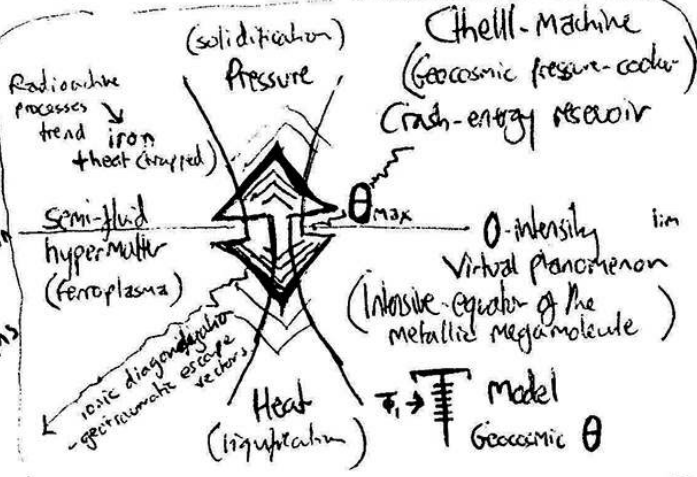 (solidification)
Pressure
Cthelll-Machine
(Geocosmic pressure-cooker)
Crash-energy resevoir
Radioactive
processes
trend iron
+ heat (trapped)
θmax
semi-fluid
hypermatter
(ferroplasma)
0-intensity lim
Virtual planomenon
(Intensive-equator of the
metallic megamolecule)
ionic diagonalization
-geotraumatic escape
vectors
Heat
(liquification)
Model
Geocosmic θ